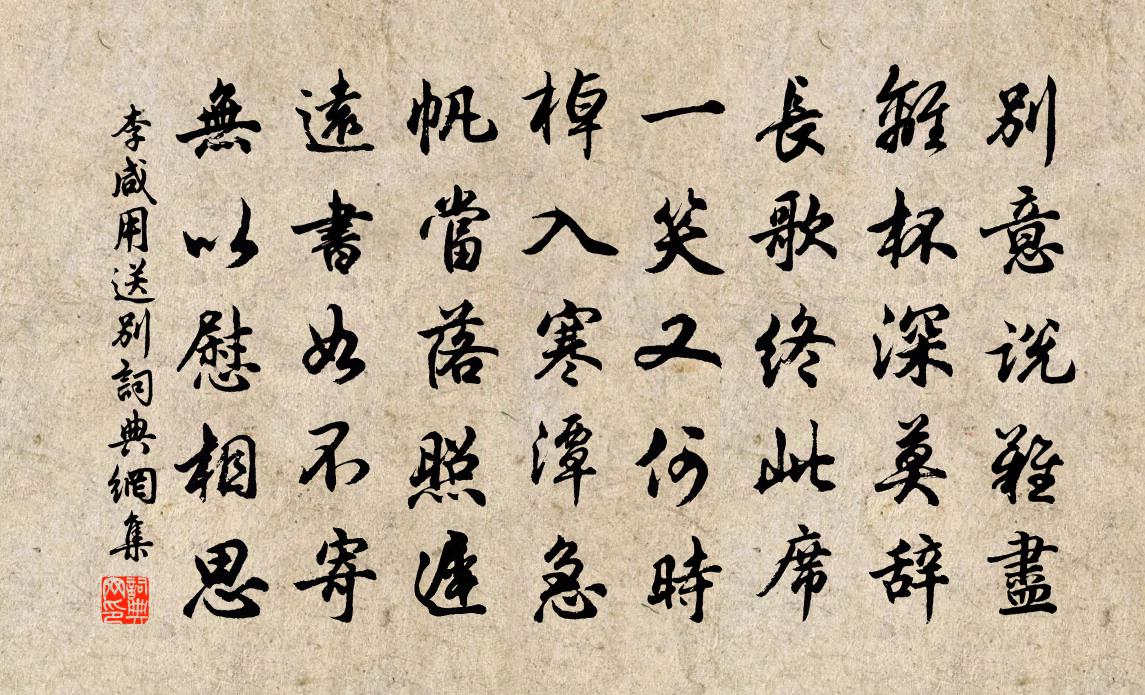 別意說難盡
離杯深莫辞
長歌終此席
一笑又何時
棹入寒潭急
帆當落照遲
遠書如不寄
無以慰相思
李咸用送別詞典網集
詞典网印